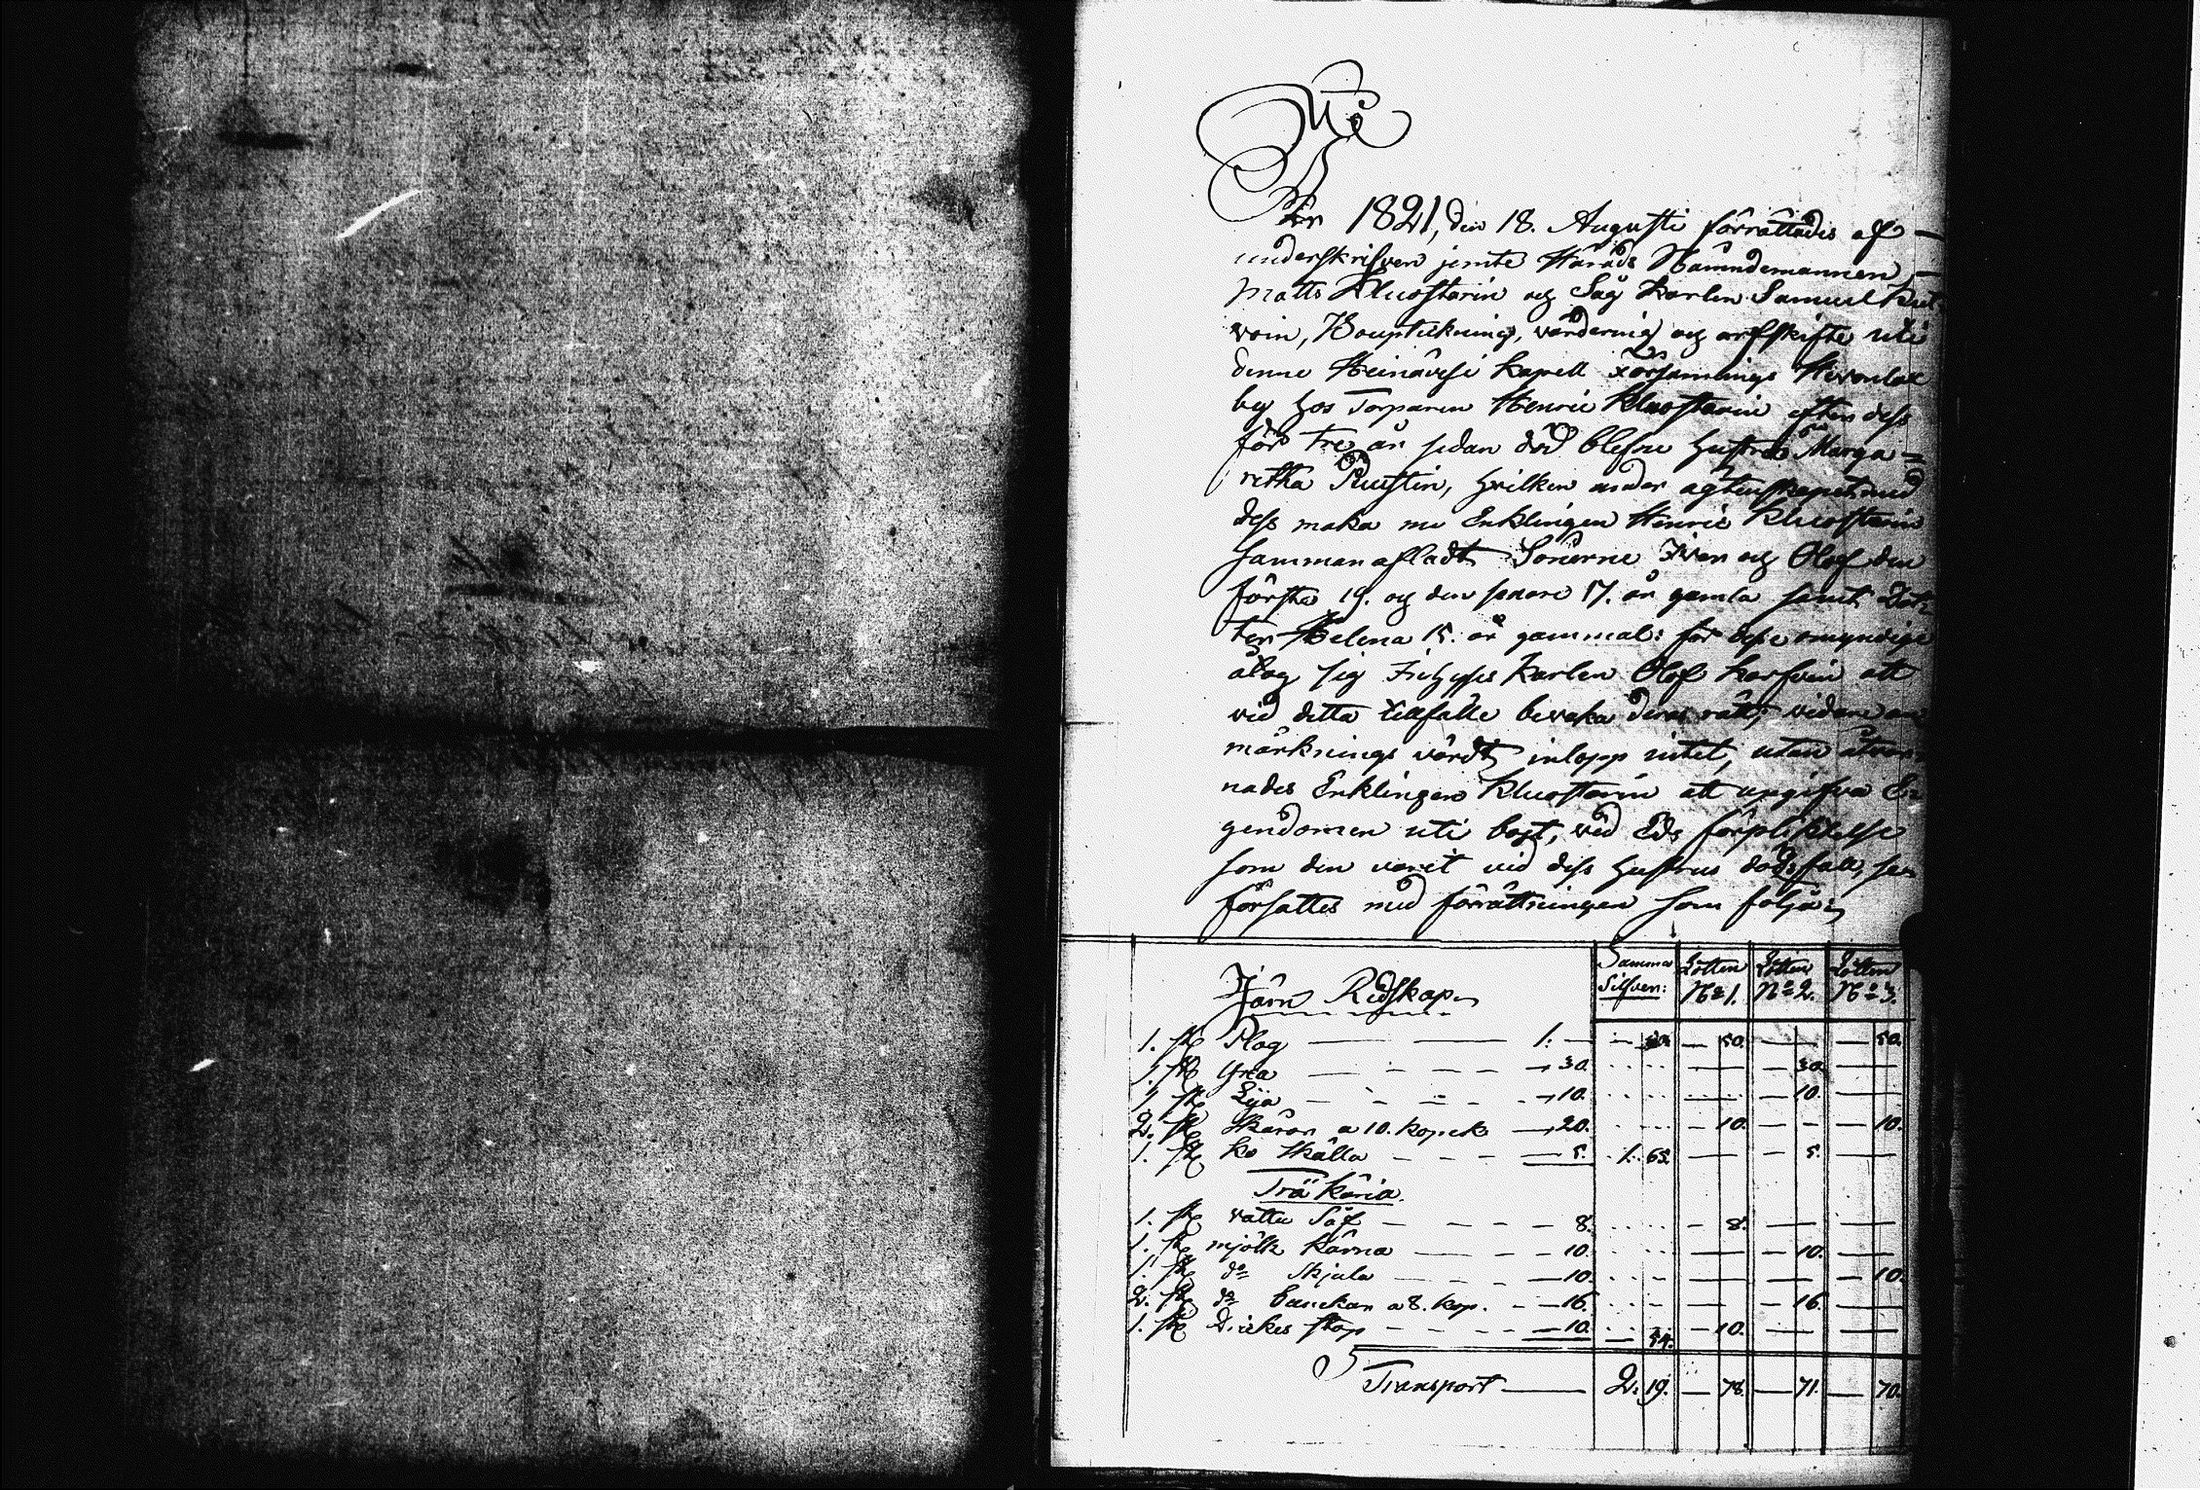 N:o 5
År 1821, den 18. Augusti förrättades af —
underskrifven jemte Härads Nämndemannen —
Matts Kluostarin og Såg Karlen Samuel
voin, Bouptekning, värdering og arfskifte uti
denne Heinävesi Kapell Församlings Hevonlax
by hos Torparen Henric Kluostarin efter dess
för tre år sedan död blefne hustru Marga=
retha Ruustin, hvilken under ägtenskapet med
dess maka nu Enklingen Henric Kluostarin
sammanafladt Sönerne Iver og Olof den
förste 19. og den senare 17. år gamla samt Dot=
ter Helena 15. år gammal: för desse omyndige
åtog sig Karlen Olof Karfvin att
vid detta tillfälle bevaka deras rätt; vidare an
märknings värdt inlopp intet, utan åtvar
nades Enklingen Kluostarin att uppgifva E=
gendomen uti bojt, vid Eds förpliktelse
som den varit vid dess hustrus dödsfall, sen
försattes med förrättningen som följer:
Summa Silfver: Lotten N:o 1. Lotten N:o 2. Lotten N:o 3.
Järn Redskap
1. st. Plog — — 1. — — 50. — — 50.
1. st. Yxa — 30. — 30. —
1. st. Lija — 10. — 10. —
2. st. Skäror a 10. kopek — 20. — 10. — — 10.
1. st. ko Skälla — 5. 1. 65. — 5. —
Trä Käril
1. st. vattu Så — 8. — 8. — —
1. st. mjölk Kärna — 10. — — 10. —
1. st. d:o Skjula — 10. — — — 10.
2. st. d:o bunckar a 8. kop. — 16. — — 16. —
1. st. Drickes stop — 10. — 54. — 10. — —
Transport — 2. 19. — 78. — 71. — 70.